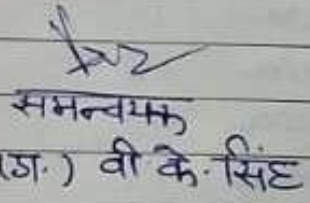 समन्वयक
(डा.) वी के. सिंह